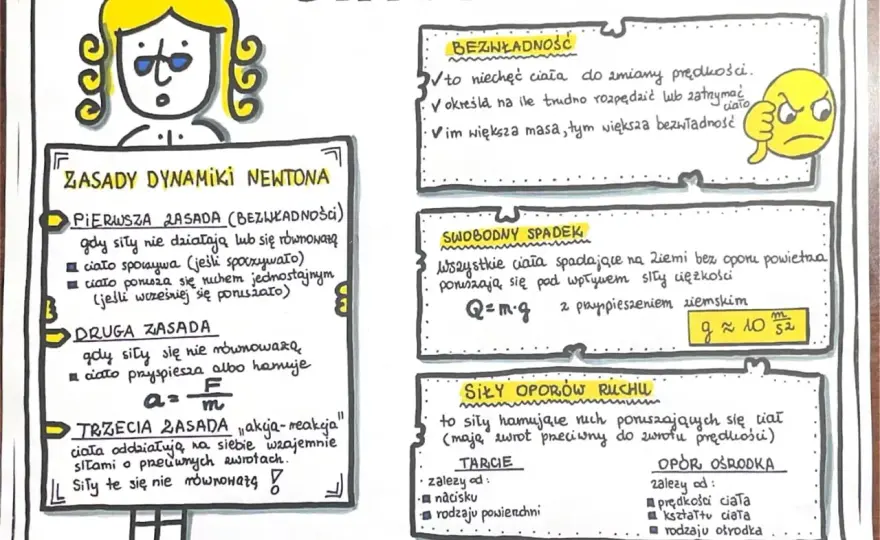 ZASADY DYNAMIKI NEWTONA
PIERWSZA ZASADA (BEZWŁADNOŚCI)
gdy siły nie działają lub się równoważą
ciało spoczywa (jeśli spoczywało)
ciało porusza się ruchem jednostajnym
(jeśli wcześniej się poruszało)
DRUGA ZASADA
gdy siły się nie równoważą
ciało przyspiesza albo hamuje
a = F/m
TRZECIA ZASADA „akcja-reakcja"
ciała oddziałują na siebie wzajemnie
siłami o przeciwnych zwrotach.
Siły te się nie równoważą !
BEZWŁADNOŚĆ
✓ to niechęć ciała do zmiany prędkości.
✓ określa na ile trudno rozpędzić lub zatrzymać
ciało
✓ im większa masa, tym większa bezwładność
SWOBODNY SPADEK
Wszystkie ciała spadające na Ziemi bez oporu powietrza
poruszają się pod wpływem siły ciężkości
Q = m·g z przyspieszeniem ziemskim
g ≈ 10 m/s2
SIŁY OPORÓW RUCHU
to siły hamujące ruch poruszających się ciał
(mają zwrot przeciwny do zwrotu prędkości)
TARCIE
zależy od:
nacisku
rodzaju powierzchni
OPÓR OŚRODKA
zależy od:
prędkości ciała
kształtu ciała
rodzaju ośrodka